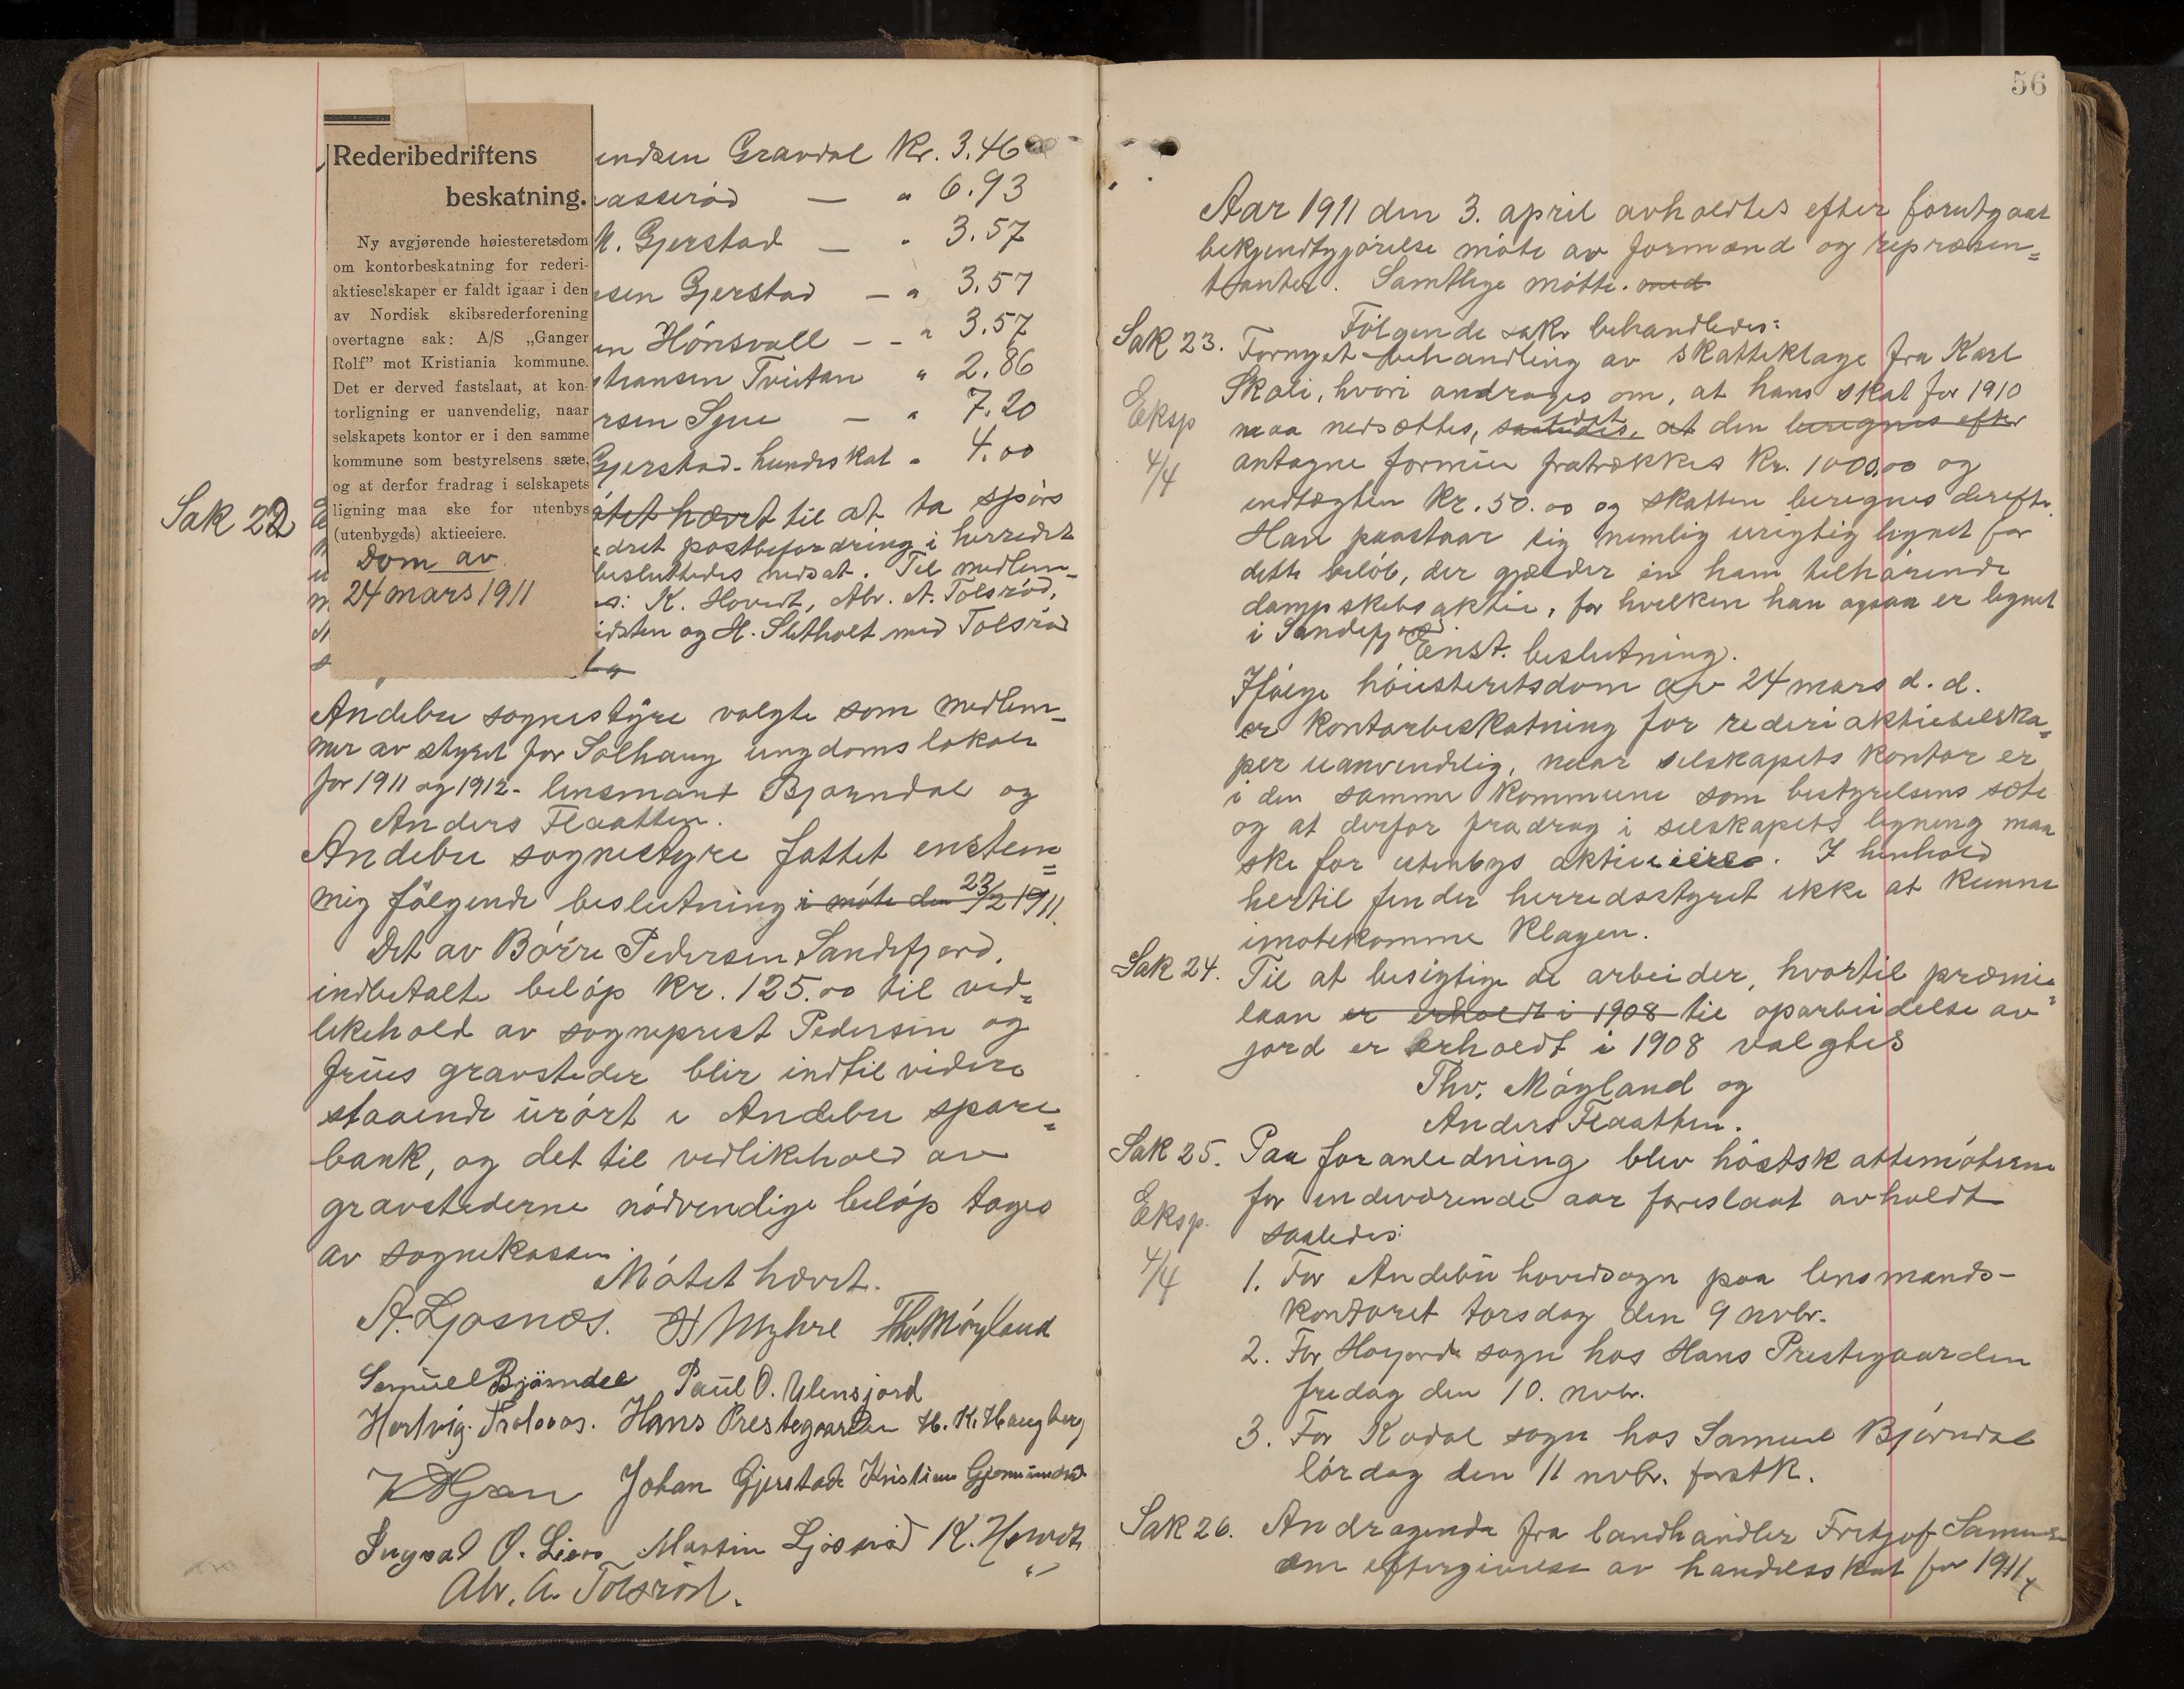 Rederibedriftens
beskatning.
Ny avgjørende høiesteretsdom
om kontorbeskatning for rederi-
aktieselskaper er faldt igaar i den
av Nordisk skibsrederforening
overtagne sak: A/S „Ganger
Rolf” mot Kristiania kommune.
Det er derved fastslaat, at kon-
torligning er uanvendelig, naar
selskapets kontor er i den samme
kommune som bestyrelsens sæte,
og at derfor fradrag i selskapets
ligning maa ske for utenbys
(utenbygds) aktieeiere.
Dom av
24 mars 1911
endsen Gravdal Kr. 3.46
asserød — " 6.93
M. Gjerstad — " 3.57
sen Gjerstad — " 3.57
en Hönsvall — " 3.57
stiansen Tveitan " 2.86
rsen — " 7.20
Gjerstad - hundeskat " 4.00
Sak 22
øtet hævet til at ta spörs
edret postbefordring i herredet
besluttedes nedsat. Til medlem-
es: K. Hovedt, Abr. A. Tolsröd,
idsten og H. Sletholt med Tolsröd
Andebu sognestyre valgte som medlem-
mer av styret for Solhaug ungdomslokale
for 1911 og 1912 - lensmand Bjørndal og
Anders Flaatten.
Andebu sognestyre fattet enstem=
mig fölgende beslutning i möte den 23/2 1911.
Det av Börre Pedersen Sandefjord,
indbetalte belöp kr. 125.00 til ved=
likehold av sogneprest Pedersen og
frues gravsteder blir indtil videre
staaende urört i Andebu spare=
bank, og det til vedlikehold av
gravstederne nödvendige belöp tages
av sognekassen.
Mötet hævet.
A. Ljosnæs. H Myhre Thv. Möyland
Samuel Bjørndal Paul O. Ulensjord
Hertvig Trolsaas. Hans Prestegaarden H. K. Haugberg
Johan Gjerstad Kristian Gjermundrød
Ingvald O. Lien Martin Ljosnæs K. Hovedt
Abr. A. Tolsröd.
56
Aar 1911 den 3. april avholdtes efter forutgaat
bekjendtgjörelse möte av formænd og repræsen=
tanter. Samtlige mötte. med
Fölgende saker behandledes:
Sak 23. Fornyet behandling av skatteklage fra Karl
Skoli, hvori andrages om, at hans skat for 1910
Eksp
4/4
maa nedsættes, saaledes, at den beregnes efter
antagne formue fratrækkes Kr. 1000.00 og
indtægten kr. 50.00 og skatten beregnes derefter.
Han paastaar sig nemlig urigtig lignet for
dette belöb, der gjælder en ham tilhörende
dampskibsaktie, for hvilken han ogsaa er lignet
i Sandefjord
Enst. beslutning.
Ifölge höiesteretsdom av 24 mars d. d.
er kontorbeskatning for rederiaktieselska=
per uanvendelig, naar selskapets kontor er
i den samme kommune som bestyrelsens sæte
og at derfor fradrag i selskapets ligning maa
ske for utenbys aktieeiere. I henhold
hertil finder herredsstyret ikke at kunne
imøtekomme klagen.
Sak 24. Til at besigtige de arbeider, hvortil præmie=
laan er erholdt i 1908 til oparbeidelse av
jord er erholdt i 1908 valgtes
Thv. Möyland og
Anders Flaatten.
Sak 25. Paa foranledning blev höstskattemöterne
for indeværende aar foreslaat avholdt
Eksp.
4/4
saaledes:
1. For Andebu hovedsogn paa lensmands-
kontoret torsdag den 9 novbr.
2. For Høyjord sogn hos Hans Prestegaarden
fredag den 10. novbr.
3. For Kodal sogn hos Samuel Bjørndal
lördag den 11 novbr. førstk.
Sak 26. Andragende fra landhandler Fretjof Samuelsen
om eftergivelse av handelsskat for 1911